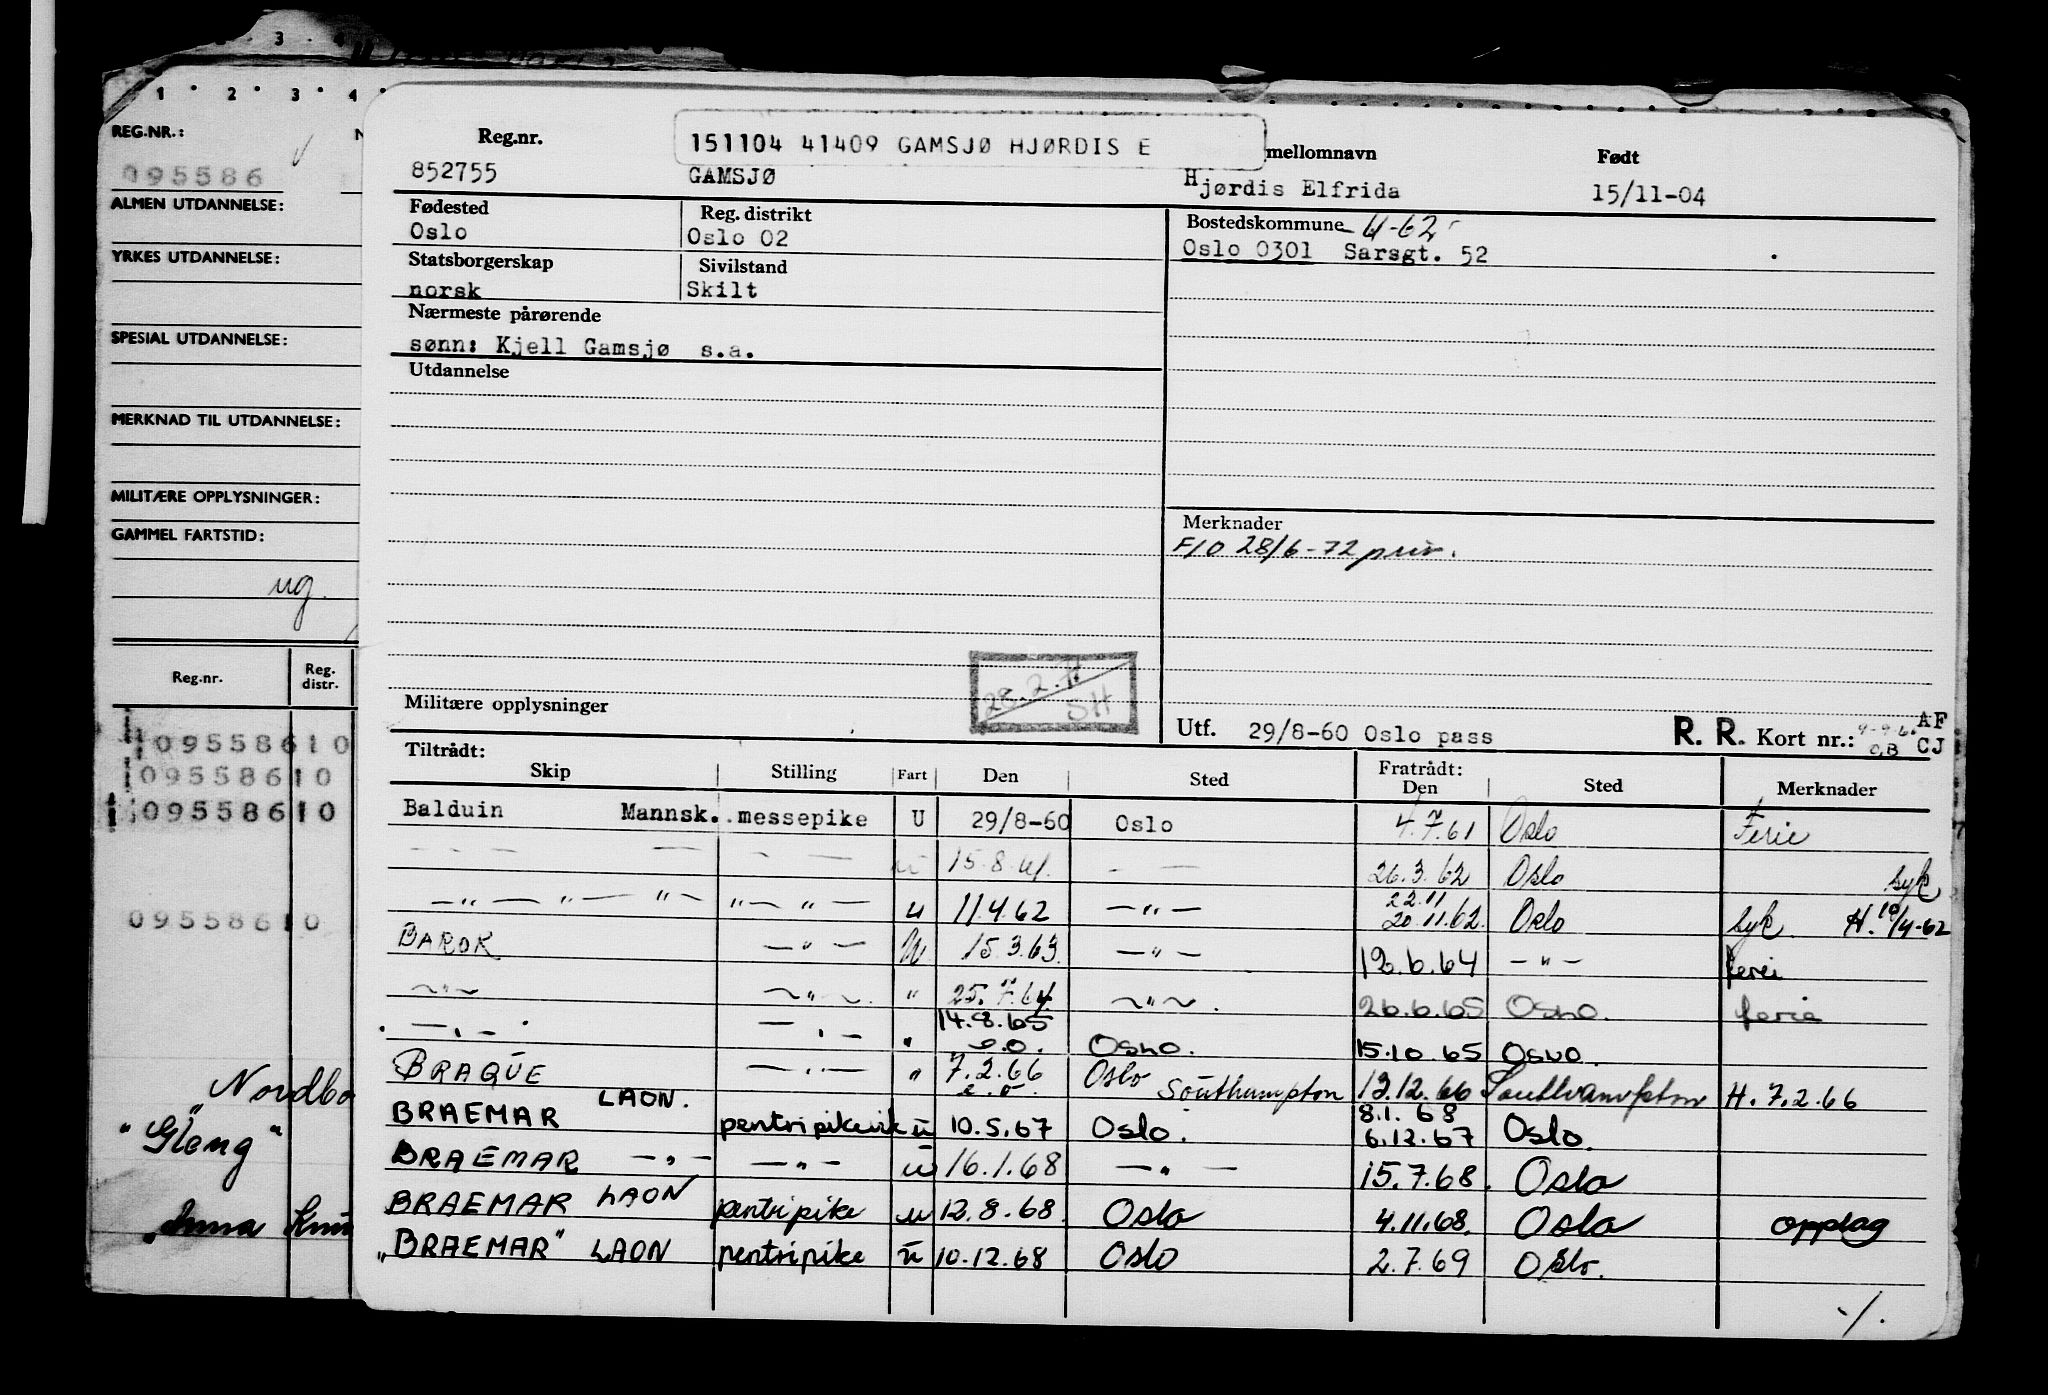 1 · 2 · 3 · 4
REG.NR.:
095586
ALMEN UTDANNELSE:
YRKES UTDANNELSE:
SPESIAL UTDANNELSE:
MERKNAD TIL UTDANNELSE:
MILITÆRE OPPLYSNINGER:
GAMMEL FARTSTID:
ug.
Reg.nr. Reg. distr.
095586 10
095586 10
095586 10
095586 10
Nordbo
"Gleng"
Anna Knu
Reg.nr. 151104 41409 GAMSJØ HJØRDIS E mellomnavn Født
852755 GAMSJØ Hjørdis Elfrida 15/11-04
Fødested Reg. distrikt Bostedskommune 4-62
Oslo Oslo 02 Oslo 0301 Sarsgt. 52
Statsborgerskap Sivilstand
norsk Skilt
Nærmeste pårørende
sønn: Kjell Gamsjø s.a.
Utdannelse
Merknader
F/O 28/6-72 priv.
28.2.
SH
Militære opplysninger
Utf. 29/8-60 Oslo pass R. R. Kort nr.: AF CJ
Tiltrådt: Fratrådt:
Skip Stilling Fart Den Sted Den Sted Merknader
Balduin Mannsk. messepike U 29/8-60 Oslo 4.7.61 Oslo Ferie
— — — — — — u 15.8.61. — — 26.3.62 Oslo syk
—„— „— „— „— „— u 11.4.62 —„— 22.11 20.11.62. Oslo syk. H. 10/4-62
BAROK —„— U 15.3.63. —„— 12.6.64 —„— ferei
—„— —„— " 25.7.64. —„—. 26.6.65 OSLO. ferie
—„— —„— " 14.8.65 e.o. OSLO. 15.10.65 OSLO.
BRAQUE —„— " 7.2.66 e.o. Oslo Southampton 13.12.66 Southampton H. 7.2.66
BRAEMAR LAON. pentripike u 10.5.67 Oslo. 8.1.68 6.12.67 Oslo.
BRAEMAR —„— —„— u 16.1.68 —„— 15.7.68. Oslo
BRAEMAR LAON pentripike u 12.8.68. Oslo 4.11.68. Oslo opplag
„BRAEMAR" LAON pentripike u 10.12.68 Oslo 2.7.69 Oslo.
·/.